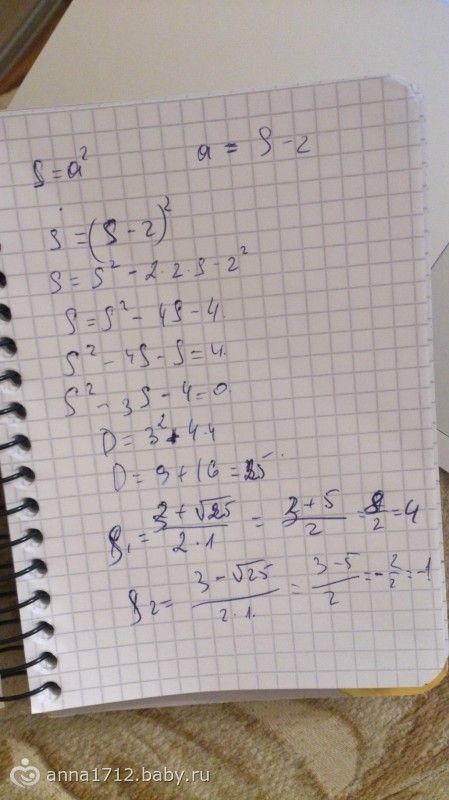 S = a² a = S - 2
S = (S - 2)²
S = S² - 2·2·S - 2²
S = S² - 4S - 4.
S² - 4S - S = 4.
S² - 3S - 4 = 0.
D = 3² + 4·4
D = 9 + 16 = 25.
S₁ = (3 + √25)/(2·1) = (3 + 5)/2 = 8/2 = 4
S₂ = (3 - √25)/(2·1.) = (3 - 5)/2 = -2/2 = -1
anna1712.baby.ru